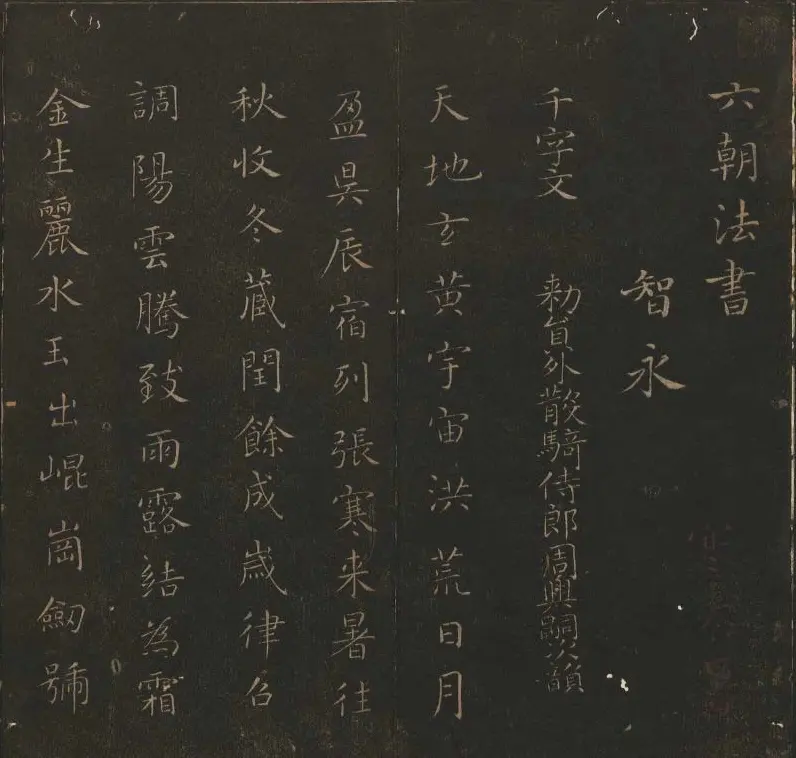 六朝法書
智永
千字文 勑員外散騎侍郎周興嗣次韻
天地玄黄宇宙洪荒日月
盈昃辰宿列張寒来暑往
秋收冬藏閏餘成歲律召
調陽雲騰致雨露結為霜
金生麗水玉出崐崗劔號